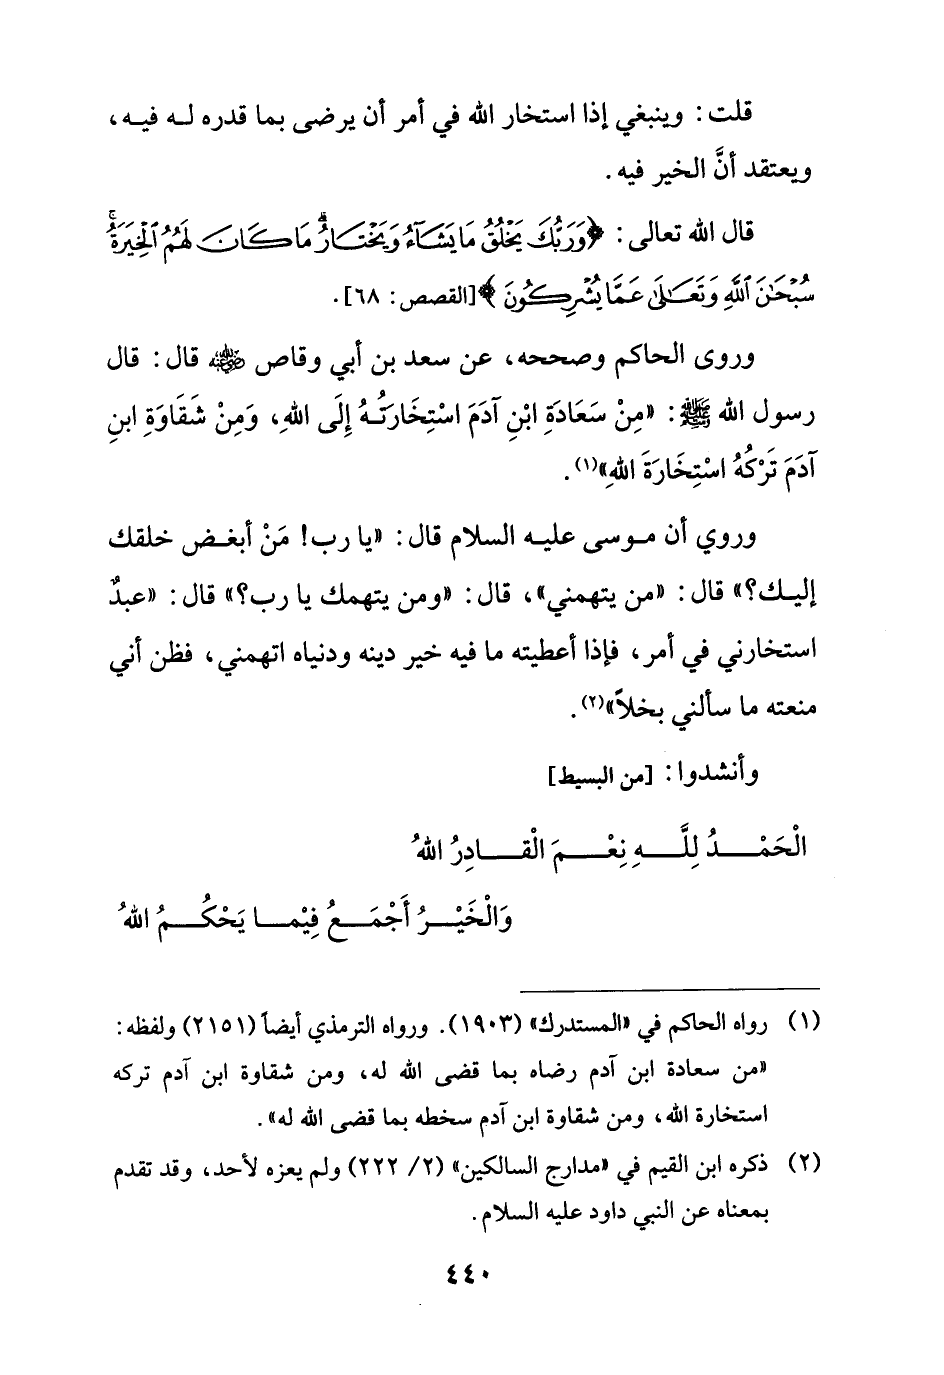 قلت: وينبغي إذا استخار الله في أمر أن يرضى بما قدره له فيه،
ويعتقد أنَّ الخير فيه.
قال الله تعالى: ﴿وَرَبُّكَ يَخْلُقُ مَا يَشَآءُ وَيَخْتَارُ ۗ مَا كَانَ لَهُمُ ٱلْخِيَرَةُ ۚ
سُبْحَٰنَ ٱللَّهِ وَتَعَٰلَىٰ عَمَّا يُشْرِكُونَ﴾ [القصص: ٦٨].
وروى الحاكم وصححه، عن سعد بن أبي وقاص رضي الله عنه قال: قال
رسول الله ﷺ: «مِنْ سَعَادَةِ ابْنِ آدَمَ اسْتِخَارَتُهُ إِلَى اللهِ، وَمِنْ شَقَاوَةِ ابنِ
آدَمَ تَرْكُهُ اسْتِخَارَةَ اللهِ»(١).
وروي أن موسى عليه السلام قال: «يا رب! مَنْ أبغض خلقك
إليك؟» قال: «من يتهمني»، قال: «ومن يتهمك يا رب؟» قال: «عبدٌ
استخارني في أمر، فإذا أعطيته ما فيه خير دينه ودنياه اتهمني، فظن أني
منعته ما سألني بخلاً»(٢).
وأنشدوا: [من البسيط]
الْحَمْدُ لِلَّهِ نِعْمَ الْقَادِرُ اللهُ
وَالْخَيْرُ أَجْمَعُ فِيْما يَحْكُمُ اللهُ
(١) رواه الحاكم في «المستدرك» (١٩٠٣). ورواه الترمذي أيضاً (٢١٥١) ولفظه:
«من سعادة ابن آدم رضاه بما قضى الله له، ومن شقاوة ابن آدم تركه
استخارة الله، ومن شقاوة ابن آدم سخطه بما قضى الله له».
(٢) ذكره ابن القيم في «مدارج السالكين» (٢/ ٢٢٢) ولم يعزه لأحد، وقد تقدم
بمعناه عن النبي داود عليه السلام.
٤٤٠